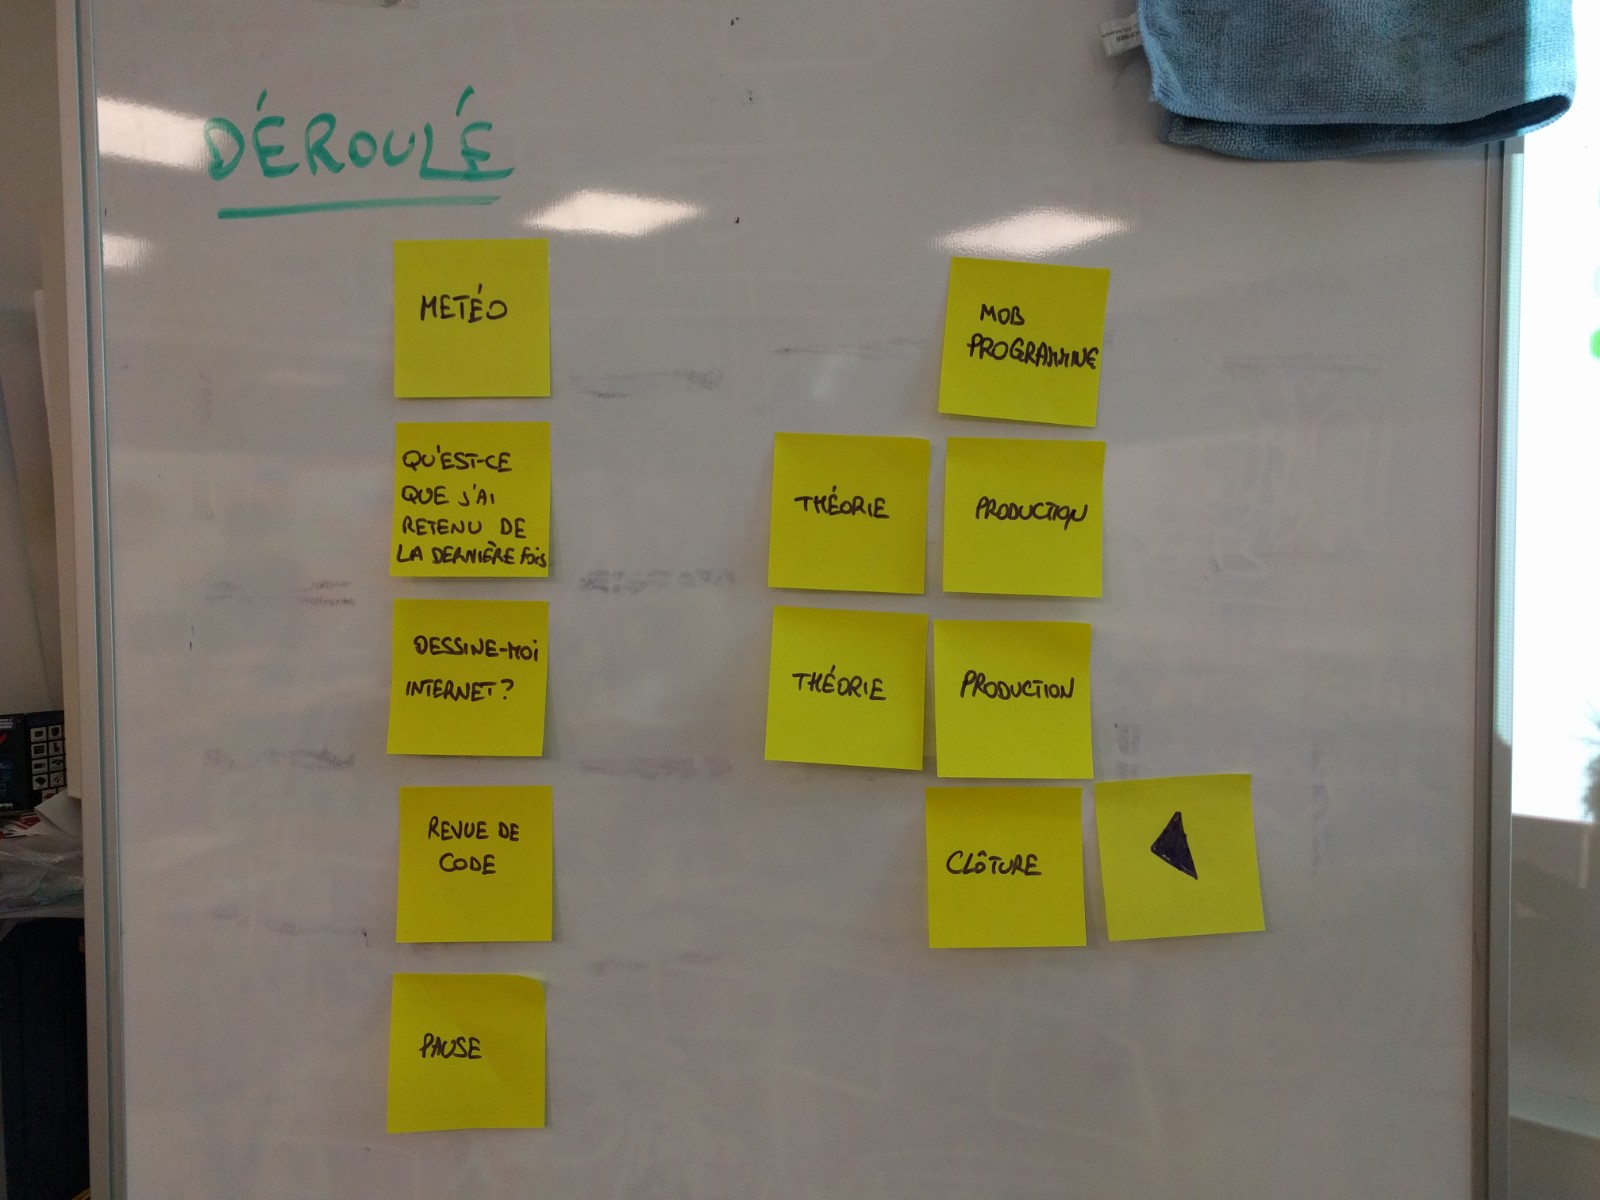 DÉROULÉ
METÉO
QU'EST-CE
QUE J'AI
RETENU DE
LA DERNIÈRE FOIS
DESSINE-MOI
INTERNET?
REVUE DE
CODE
PAUSE
MOB
PROGRAMMINE
THÉORIE
PRODUCTION
THÉORIE
PRODUCTION
CLÔTURE